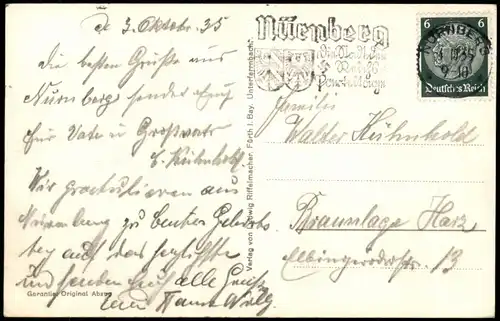 d. 3. Oktober. 35
die besten Grüße aus
Nürnberg sendet Euch
für Vater u Großvater
Kühnhold
Wir gratulieren aus
Nürnberg zu
tag auf das herzlichste
und senden Euch alle Grüße
Garantiert Original Abzug
Verlag von Ludwig Riffelmacher, Fürth i. Bay. Unterfarrnbach
Nürnberg
die Stadt der
Reichs
Parteitage
NÜRNBERG
6 6
Deutsches Reich
Familie
Walter Kühnhold
Braunlage Harz
Elbingeroderstr. 13